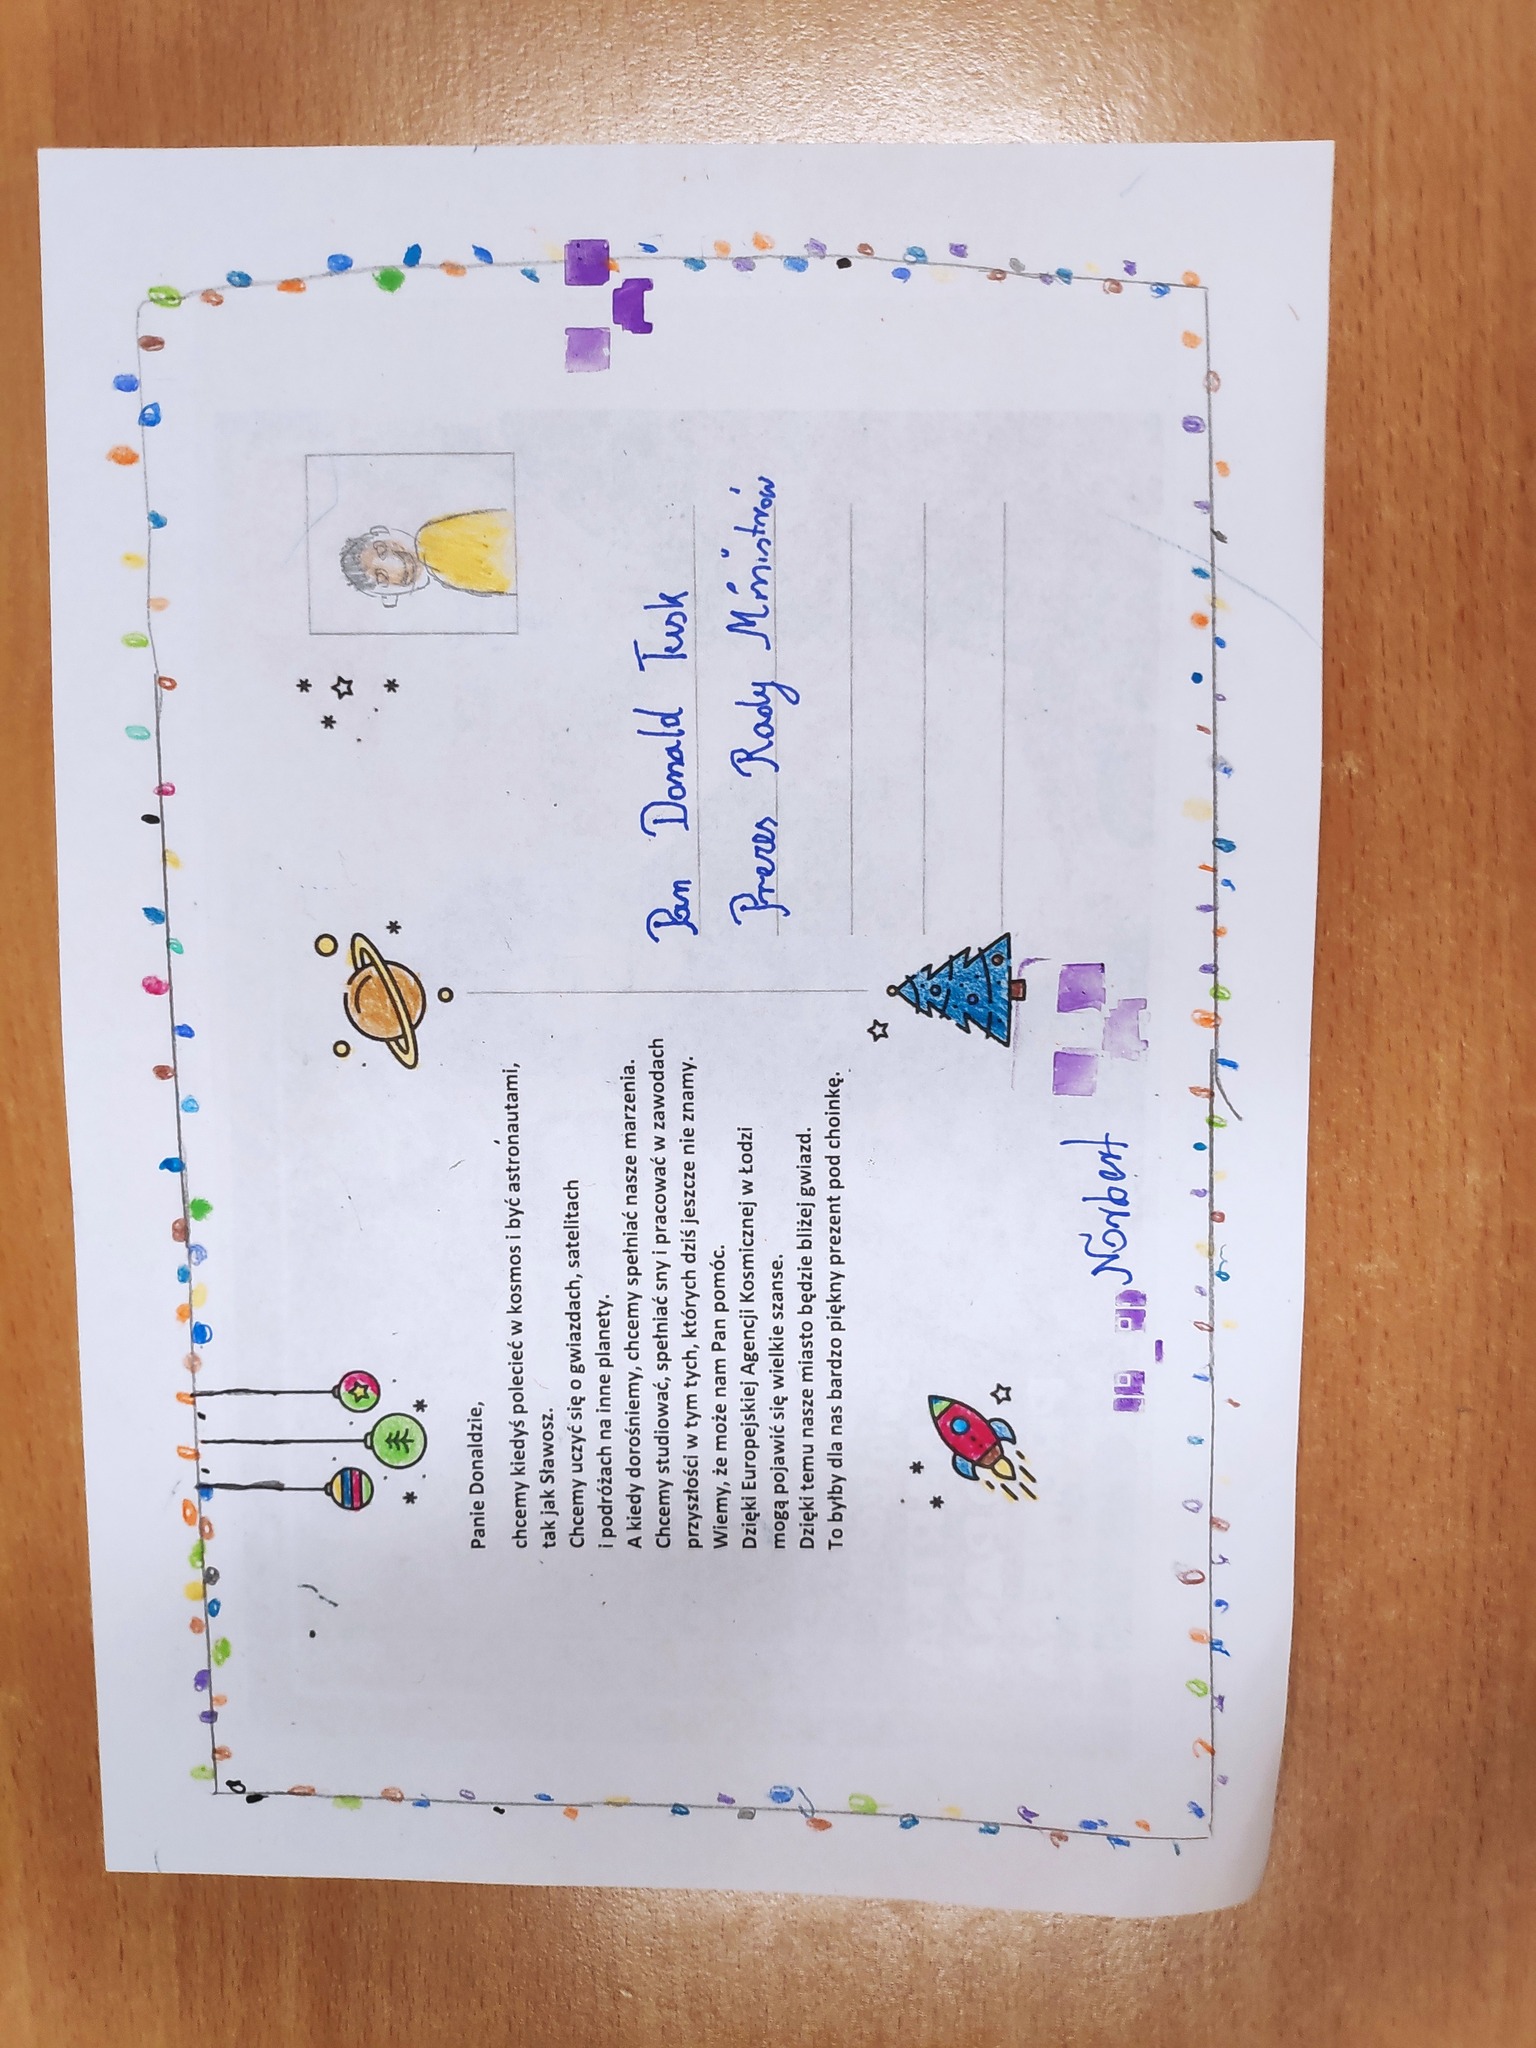 Panie Donaldzie,
chcemy kiedyś polecieć w kosmos i być astronautami,
tak jak Sławosz.
Chcemy uczyć się o gwiazdach, satelitach
i podróżach na inne planety.
A kiedy dorośniemy, chcemy spełniać nasze marzenia.
Chcemy studiować, spełniać sny i pracować w zawodach
przyszłości w tym tych, których dziś jeszcze nie znamy.
Wiemy, że może nam Pan pomóc.
Dzięki Europejskiej Agencji Kosmicznej w Łodzi
mogą pojawić się wielkie szanse.
Dzięki temu nasze miasto będzie bliżej gwiazd.
To byłby dla nas bardzo piękny prezent pod choinkę.
Norbert
Pan Donald Tusk
Prezes Rady Ministrów